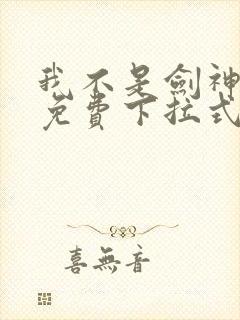 我不是劍神
免費下拉式
喜無音